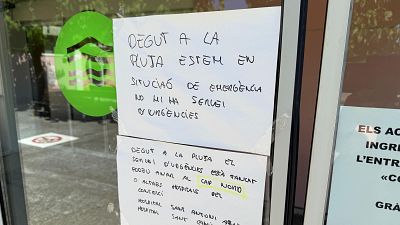 DEGUT A LA
PLUJA ESTEM EN
SITUCIAÓ DE EMERGÈNCIA
NO HI HA SERVEI
D'URGÈNCIES
DEGUT A LA PLUJA EL
SERVEI D'URGÈNCIES ESTÀ TANCAT
PODEU ANAR AL CAP
O ALTRES HOSPITALS DEL
CONSORCI
HOSPITAL SANT ANTONI
HOSPITAL SANT
ELS AC
INGRE
L'ENTR
«CO
GRÀ